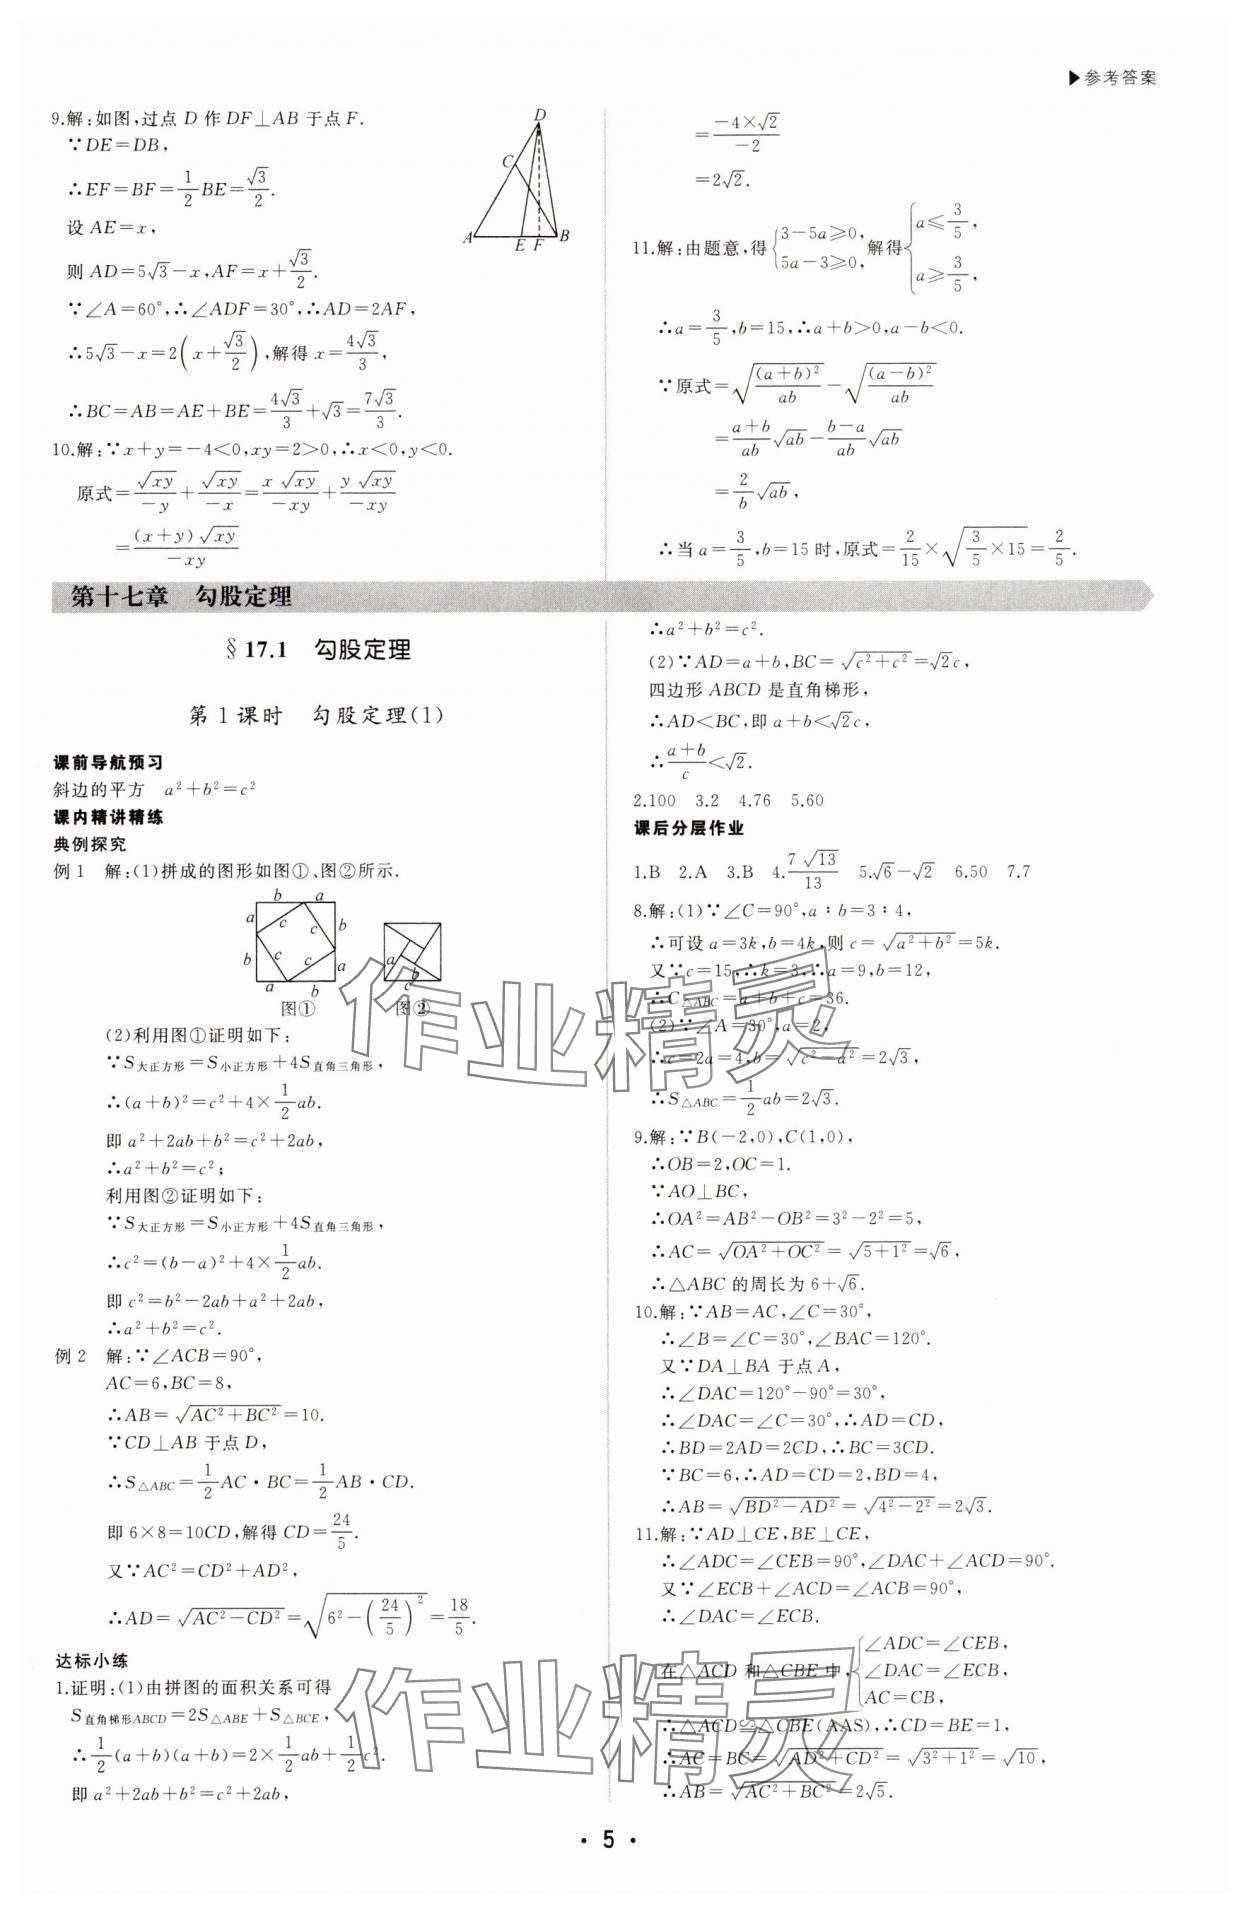 ▶参考答案
9.解:如图,过点 D 作 DF⊥AB 于点 F.
∵DE=DB,
∴EF=BF=1/2BE=√3/2.
设 AE=x,
则 AD=5√3-x,AF=x+√3/2.
∵∠A=60°,∴∠ADF=30°,∴AD=2AF,
∴5√3-x=2(x+√3/2),解得 x=4√3/3,
∴BC=AB=AE+BE=4√3/3+√3=7√3/3.
D
C
A E F B
10.解:∵x+y=-4<0,xy=2>0,∴x<0,y<0.
原式=√xy/-y+√xy/-x=x√xy/-xy+y√xy/-xy
=(x+y)√xy/-xy
=-4×√2/-2
=2√2.
11.解:由题意,得{3-5a≥0,5a-3≥0,解得{a≤3/5,a≥3/5,
∴a=3/5,b=15,∴a+b>0,a-b<0.
∵原式=√((a+b)²/ab)-√((a-b)²/ab)
=(a+b)/ab √ab-(b-a)/ab √ab
=2/b √ab,
∴当 a=3/5,b=15 时,原式=2/15×√(3/5×15)=2/5.
第十七章 勾股定理
§17.1 勾股定理
第1课时 勾股定理(1)
课前导航预习
斜边的平方 a²+b²=c²
课内精讲精练
典例探究
例1 解:(1)拼成的图形如图①、图②所示.
b a
a c c b
b c c a
a b
图①
a
c
图②
(2)利用图①证明如下:
∵S大正方形=S小正方形+4S直角三角形,
∴(a+b)²=c²+4×1/2ab.
即 a²+2ab+b²=c²+2ab,
∴a²+b²=c²;
利用图②证明如下:
∵S大正方形=S小正方形+4S直角三角形,
∴c²=(b-a)²+4×1/2ab.
即 c²=b²-2ab+a²+2ab,
∴a²+b²=c².
例2 解:∵∠ACB=90°,
AC=6,BC=8,
∴AB=√(AC²+BC²)=10.
∵CD⊥AB 于点 D,
∴S△ABC=1/2AC·BC=1/2AB·CD.
即 6×8=10CD,解得 CD=24/5.
又∵AC²=CD²+AD²,
∴AD=√(AC²-CD²)=√(6²-(24/5)²)=18/5.
达标小练
1.证明:(1)由拼图的面积关系可得
S直角梯形ABCD=2S△ABE+S△BCE,
∴1/2(a+b)(a+b)=2×1/2ab+1/2c².
即 a²+2ab+b²=c²+2ab,
∴a²+b²=c².
(2)∵AD=a+b,BC=√(c²+c²)=√2c,
四边形 ABCD 是直角梯形,
∴AD<BC,即 a+b<√2c,
∴(a+b)/c<√2.
2.100 3.2 4.76 5.60
课后分层作业
1.B 2.A 3.B 4.7√13/13 5.√6-√2 6.50 7.7
8.解:(1)∵∠C=90°,a∶b=3∶4,
∴可设 a=3k,b=4k,则 c=√(a²+b²)=5k.
又∵c=15,∴k=3,∴a=9,b=12,
∴C△ABC=a+b+c=36.
(2)∵∠A=30°,a=2,
∴c=2a=4,b=√(c²-a²)=2√3,
∴S△ABC=1/2ab=2√3.
9.解:∵B(-2,0),C(1,0),
∴OB=2,OC=1.
∵AO⊥BC,
∴OA²=AB²-OB²=3²-2²=5,
∴AC=√(OA²+OC²)=√(5+1²)=√6,
∴△ABC 的周长为 6+√6.
10.解:∵AB=AC,∠C=30°,
∴∠B=∠C=30°,∠BAC=120°.
又∵DA⊥BA 于点 A,
∴∠DAC=120°-90°=30°,
∴∠DAC=∠C=30°,∴AD=CD,
∴BD=2AD=2CD,∴BC=3CD.
∵BC=6,∴AD=CD=2,BD=4,
∴AB=√(BD²-AD²)=√(4²-2²)=2√3.
11.解:∵AD⊥CE,BE⊥CE,
∴∠ADC=∠CEB=90°,∠DAC+∠ACD=90°.
又∵∠ECB+∠ACD=∠ACB=90°,
∴∠DAC=∠ECB.
在△ACD 和△CBE 中,{∠ADC=∠CEB,∠DAC=∠ECB,AC=CB,
∴△ACD≌△CBE(AAS),∴CD=BE=1,
∴AC=BC=√(AD²+CD²)=√(3²+1²)=√10,
∴AB=√(AC²+BC²)=2√5.
作业精灵
作业精灵
·5·